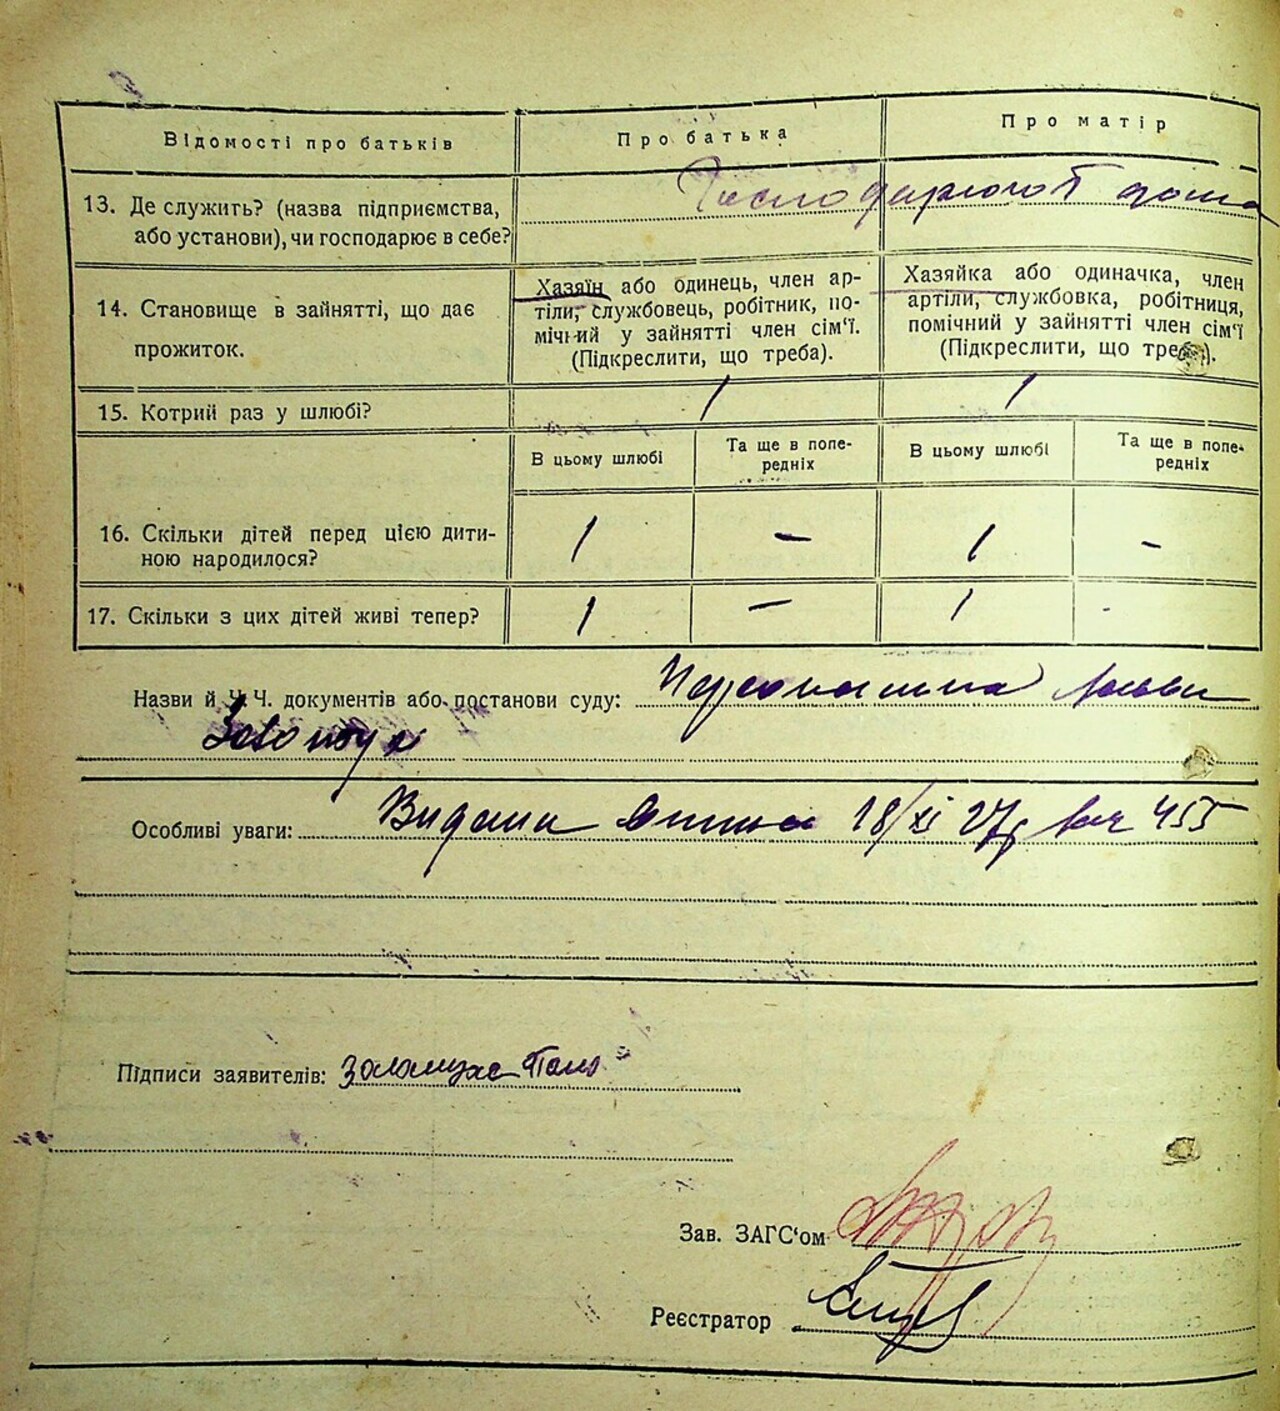 Відомості про батьків
Про батька
Про матір
13. Де служить? (назва підприємства,
або установи), чи господарює в себе?
14. Становище в зайнятті, що дає
прожиток.
Хазяїн або одинець, член ар-
тіли, службовець, робітник, по-
мічний у зайнятті член сім'ї.
(Підкреслити, що треба).
Хазяйка або одиначка, член
артіли, службовка, робітниця,
помічний у зайнятті член сім'ї
(Підкреслити, що треба).
15. Котрий раз у шлюбі?
1
1
В цьому шлюбі
Та ще в попе-
редніх
В цьому шлюбі
Та ще в попе-
редніх
16. Скільки дітей перед цією дити-
ною народилося?
1 – 1 –
17. Скільки з цих дітей живі тепер?
1 – 1 -
Назви й Ч.Ч. документів або постанови суду:
Особливі уваги: Видана 18/XI 27 455
Підписи заявителів:
Зав. ЗАГС'ом
Реєстратор